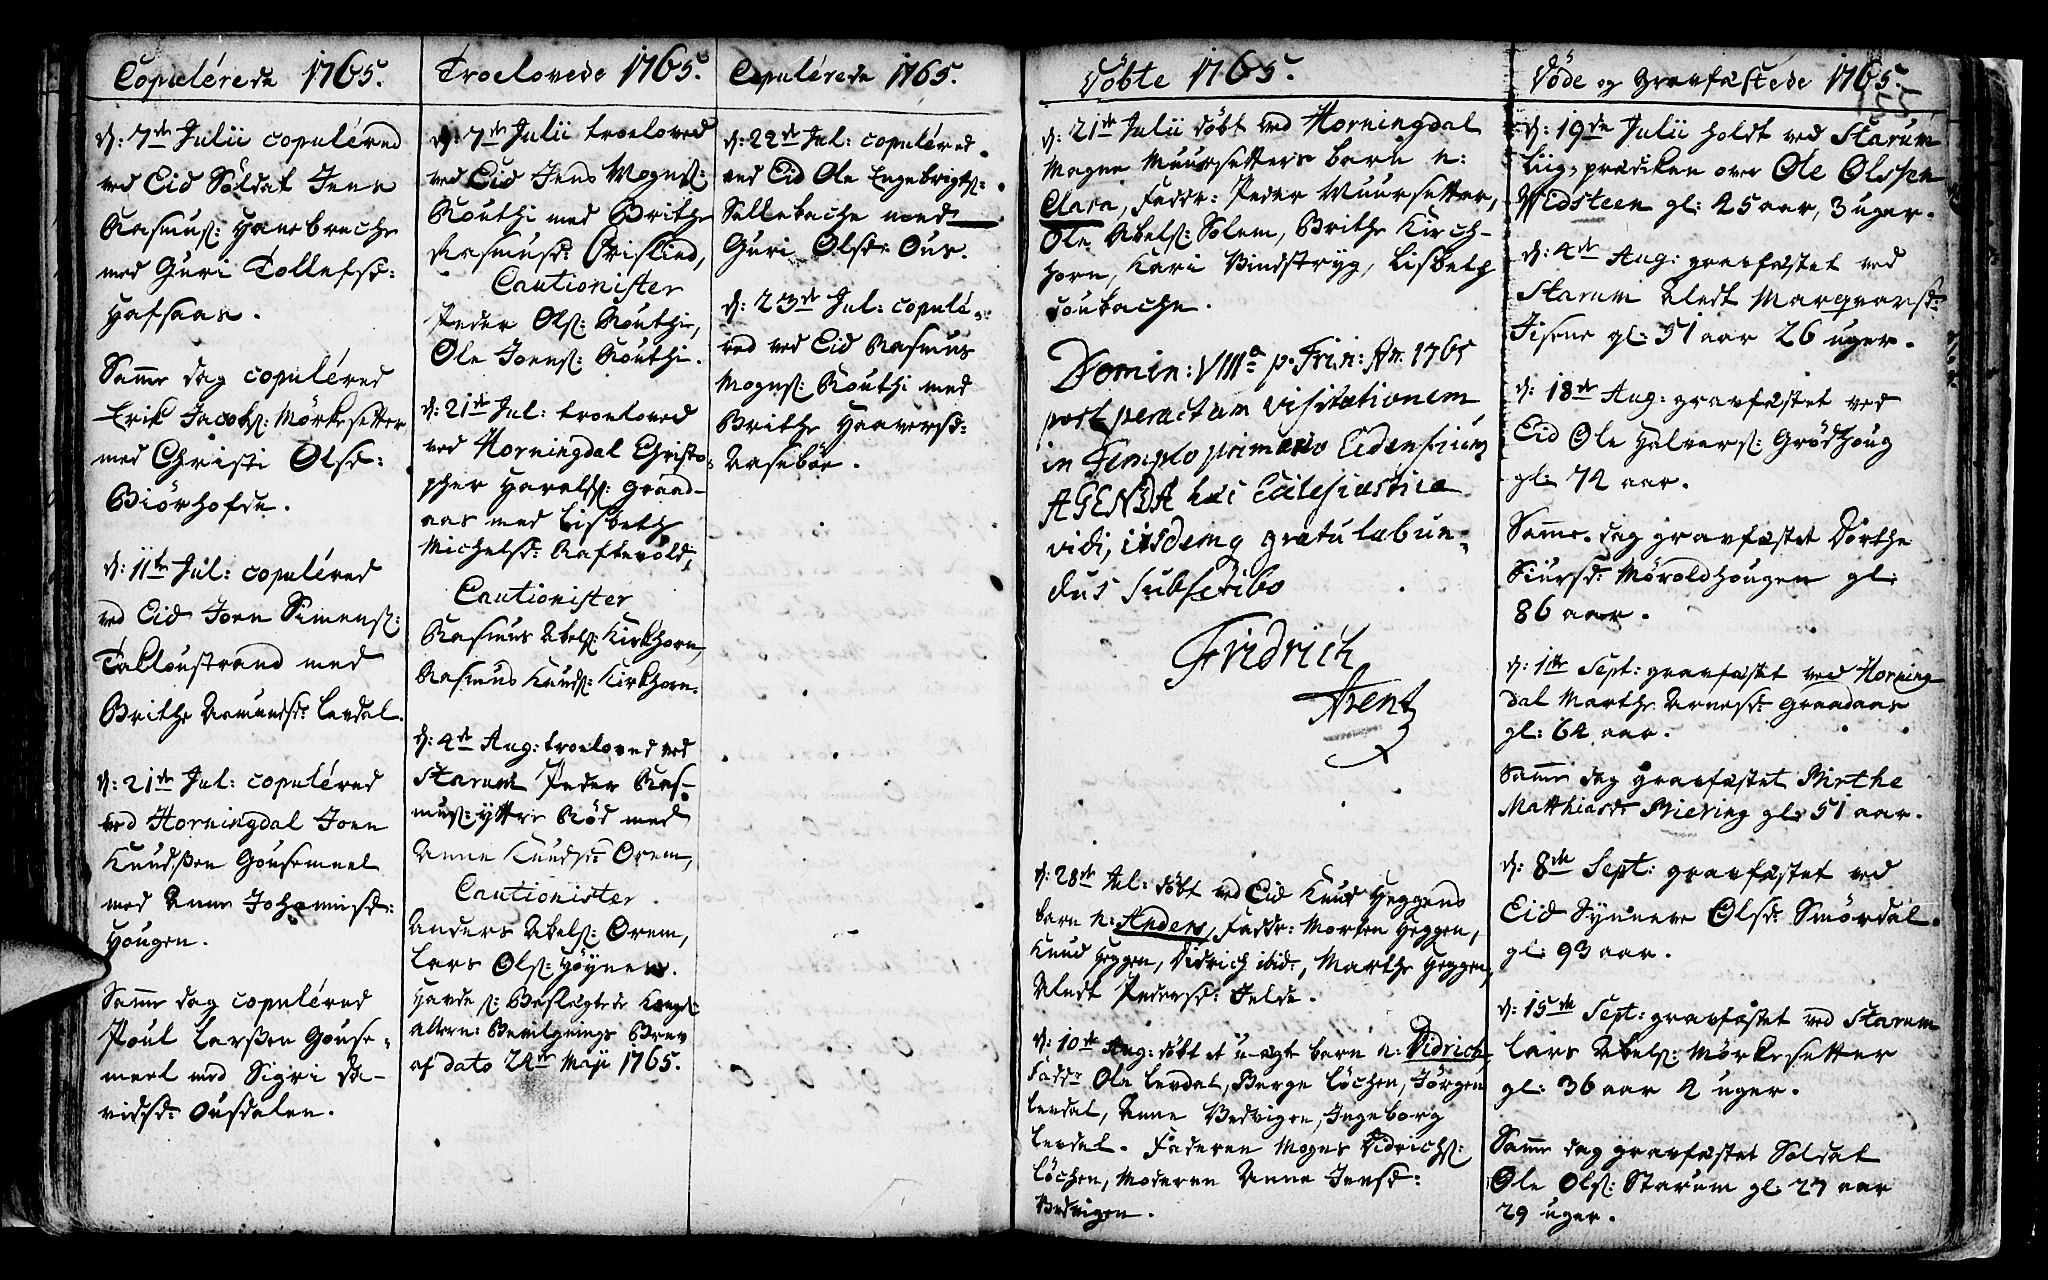 Copulérede 1765.
d: 7de Julii copuléred
ved Eid Soldat Jens
Rasmusß: Hanebreche
med Guri Tollefsd:
Hafsaas.
Samme dag copuléred
Erik Jacobß: Mörkesetter
med Christi Olsd:
Biörhofde.
d: 11te Jul: copuléred
ved Eid Joen Simensß:
Talloustrand med
Brithe Aamundsd: Levdal.
d: 21de Jul: copuléred
ved Horningdal Joen
Knudßen Gousemeel
med Anne Johannisd:
Hougen.
Samme dag copuléred
Poul Larßen Gouse-
meel med Sigri Da-
vidsd: Ousdalen.
Troelovede 1765.
d: 7de Julii troeloved
ved Eid Jens Mognsß:
Routhi med Brithe
Rasmusd: Crislied,
Cautionister
Peder Olsß: Routhi,
Ole Joensß: Routhi.
d: 21de Jul: troeloved
ved Horningdal Christo-
pher Haraldsß: Graad-
aas med Lisbeth
Michelsd: Raftevold,
Cautionister
Rasmus Abelsß: Kirkhorn,
Rasmus Knudsß: Kirkhorn.
d: 4de Aug: troeloved ved
Starum Peder Ras-
musß: yttre Röd med
Anne Knudsd: Orem,
Cautionister
Anders Abelsß: Orem,
Lars Olsß: Höynes.
Havde ß: Beslægtede Kongl:
allern: Bevilgnings Brev
af dato 24de Maji 1765.
Copulérede 1765.
d: 22de Jul: copuléred
ved Eid Ole Engebrigtsß:
Sellebache med
Guri Olsd: Ous.
d: 23de Jul: copulé-
red ved Eid Rasmus
Mognsß: Routhi med
Brithe Haaversd:
Aaseböe.
Döbte 1765.
d: 21de Julii döbt ved Horningdal
Magne Muursetters barn n:
Clara, Faddr: Peder Muursetter,
Ole Abelsß: Solem, Brithe Kirch-
horn, Kari Vindstryg, Lisbeth
Doubache.
Domin: VIIIa p. Trin: An. 1765
post peractam visitationem
in Templo primario Eidensium
AGENDA hæc Ecclesiastica
vidi, iisdemq gratulabun-
dus subscribo
Fridrich
Arentz
d: 28de Jul: döbt ved Eid Knud Heggens
barn n: Anders, Faddr: Morten Heggen,
Knud Heggen, Didrich ibid:, Marthe Heggen,
Aledt Pedersd: Jelde.
d: 10de Aug: döbt et uægte barn n: Didrich,
Faddr Ole Levdal, Berge Löchen, Jörgen
Levdal, Anne Bedvigen, Ingeborg
Levdal. Faderen Mogns Didrichsß:
Löchen, Moderen Anne Jensd:
Bedvigen.
Döde og Gravfæstede 1765.
d: 19de Julii holdt ved Starum
Liig-prædiken over Ole Olssen
Hedsteen gl: 25 aar, 3 uger.
d: 4de Aug: gravfæstet ved
Starum Aledt Marqvarsd:
Tisene gl: 51 aar 26 uger.
d: 18de Aug: gravfæstet ved
Eid Ole Halversß: Grödhoug
gl: 72 aar.
Samme dag gravfæstet Dorthe
Siursd: Möroldhougen gl:
86 aar.
d: 1te Sept: gravfæstet ved Horning
dal Marthe Arnesd: Graadaas
gl: 62 aar.
Samme dag gravfæstet Birthe
Matthiasd: Biering gl: 51 aar.
d: 8de Sept: gravfæstet ved
Eid Synneve Olsd: Smördal.
gl: 93 aar.
d: 15de Sept: gravfæstet ved Starum
Lars Abelsß: Mörkesetter
gl: 36 aar 2 uger.
Samme dag gravfæstet Soldat
Ole Olsß: Starum gl: 27 aar
29 uger.